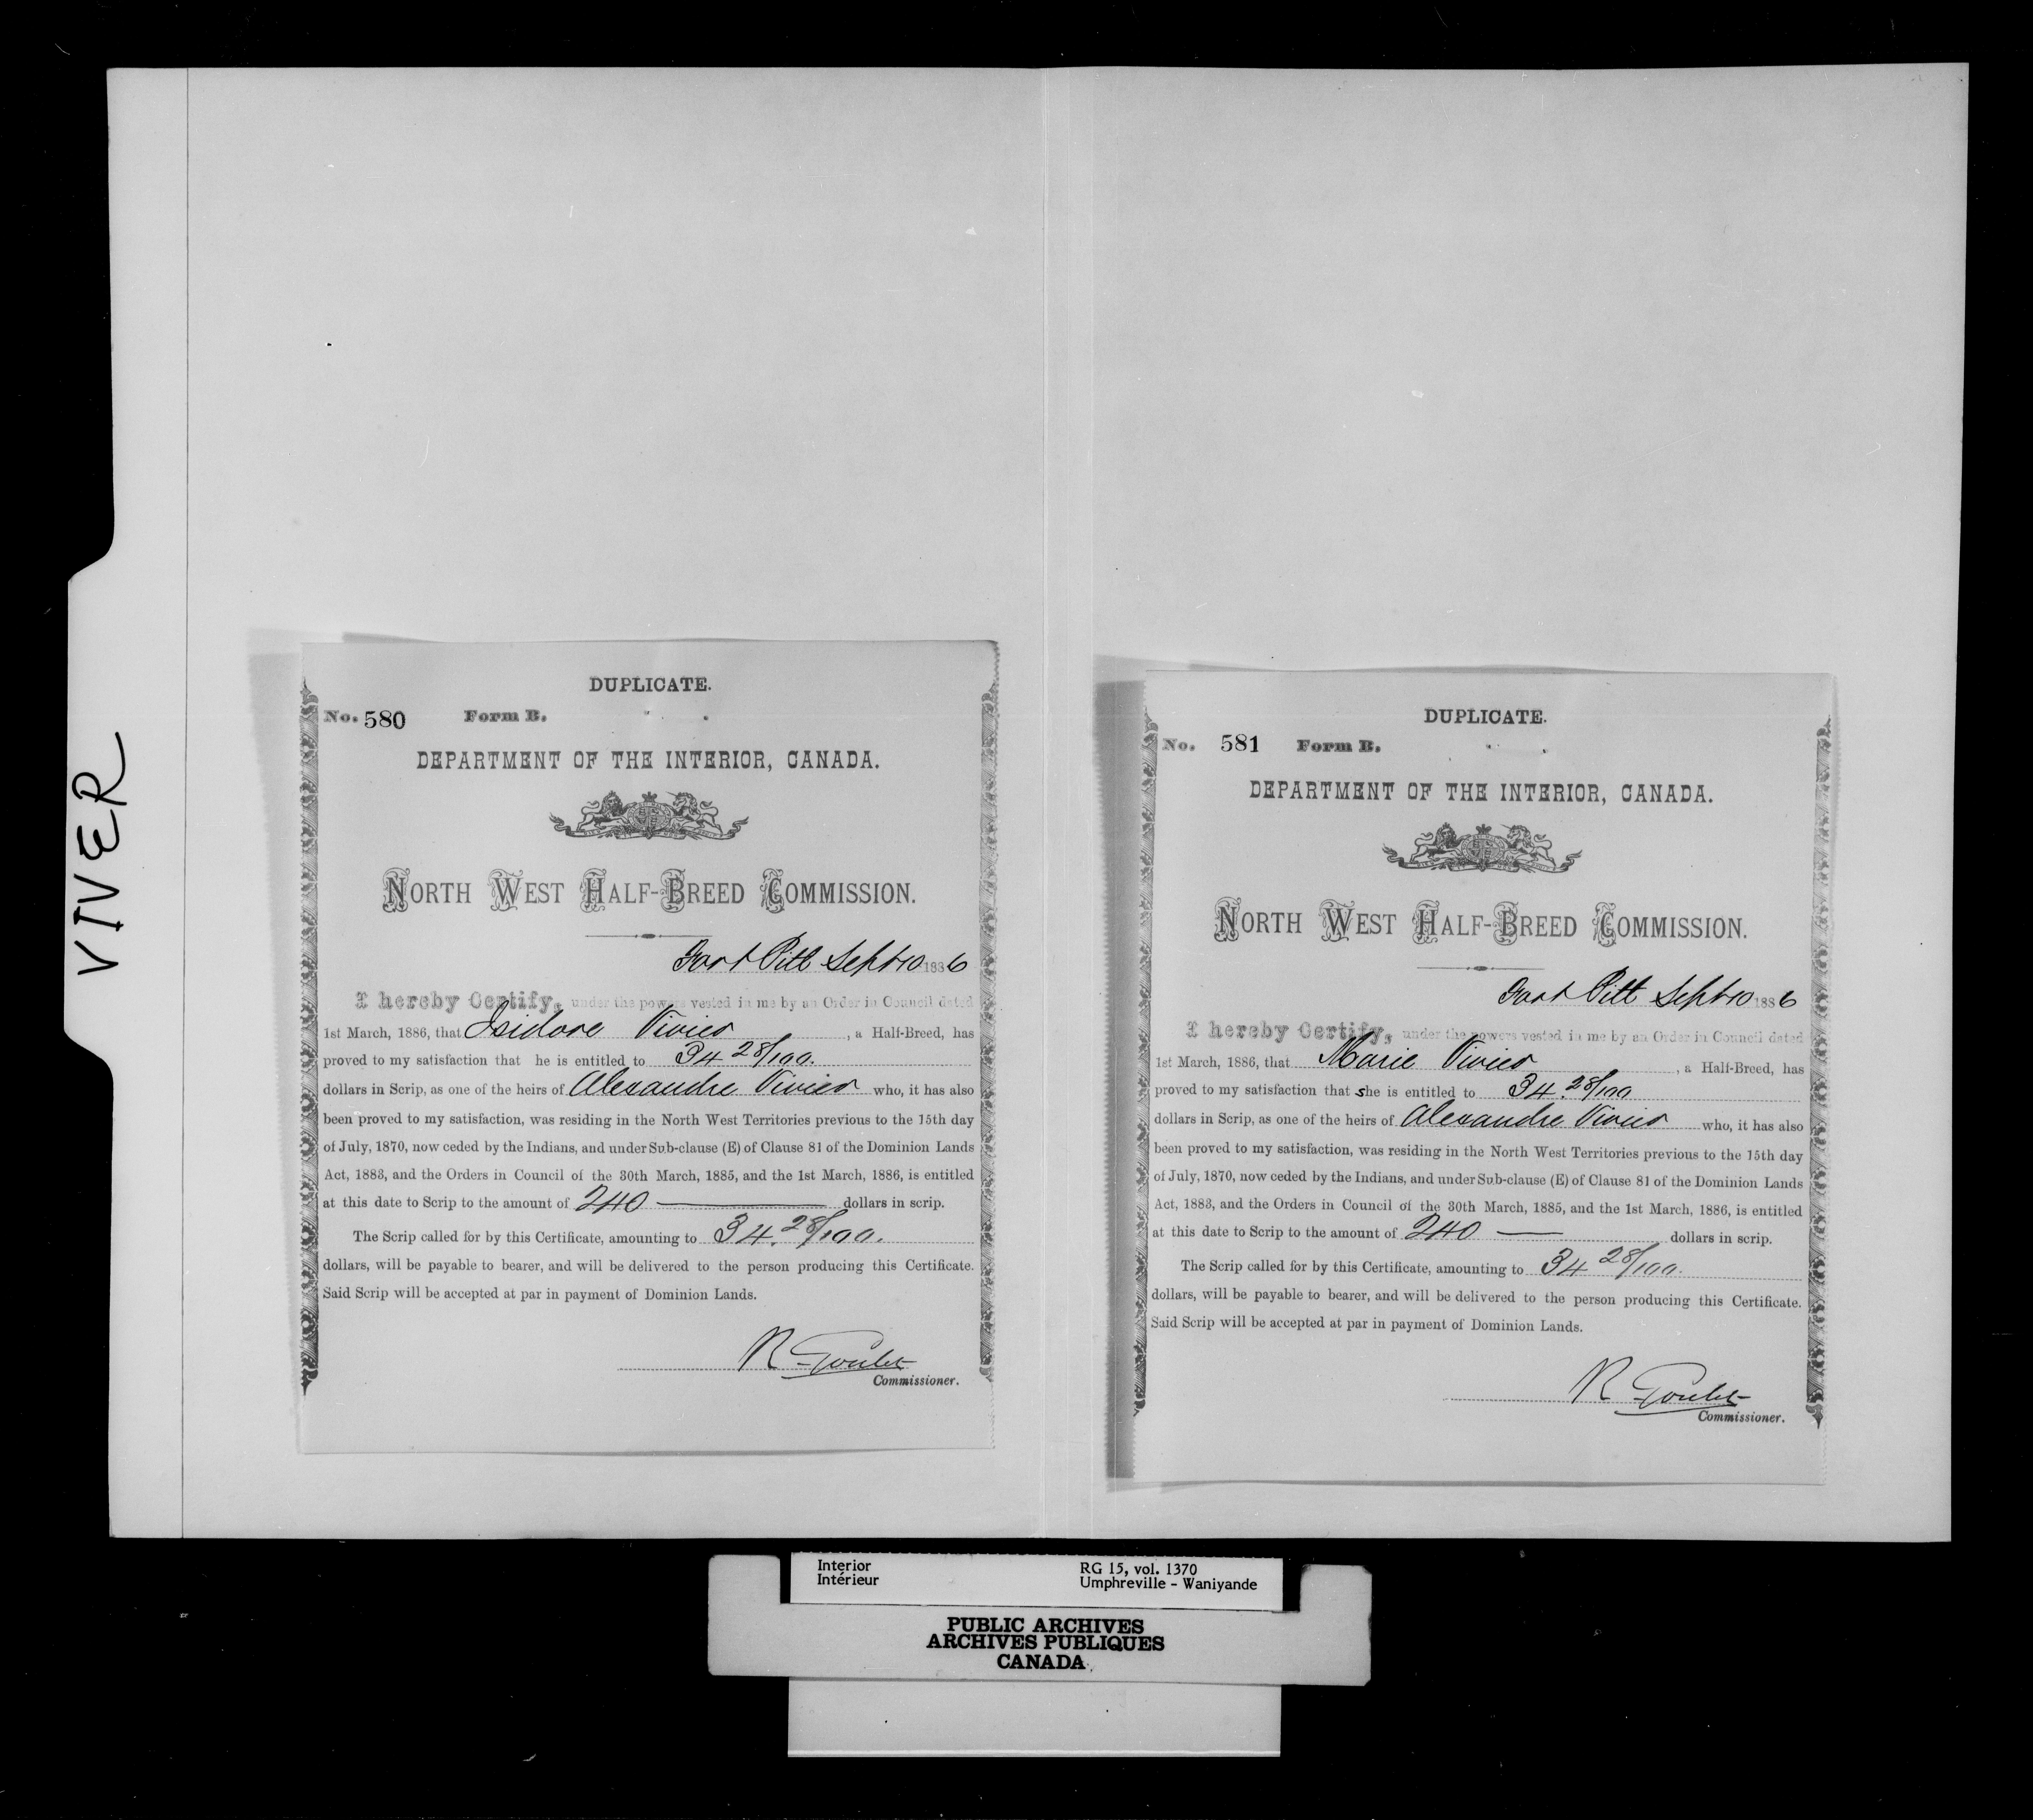 VIVER
DUPLICATE.
No. 580 Form B.
DEPARTMENT OF THE INTERIOR, CANADA.
NORTH WEST HALF-BREED COMMISSION.
Fort Pitt Sept 10 1886
I hereby Certify, under the powers vested in me by an Order in Council dated
1st March, 1886, that Isidore Vivier, a Half-Breed, has
proved to my satisfaction that he is entitled to 34 28/100.
dollars in Scrip, as one of the heirs of Alexandre Vivier who, it has also
been proved to my satisfaction, was residing in the North West Territories previous to the 15th day
of July, 1870, now ceded by the Indians, and under Sub-clause (E) of Clause 81 of the Dominion Lands
Act, 1883, and the Orders in Council of the 30th March, 1885, and the 1st March, 1886, is entitled
at this date to Scrip to the amount of 240 — dollars in scrip.
The Scrip called for by this Certificate, amounting to 34.28/100.
dollars, will be payable to bearer, and will be delivered to the person producing this Certificate.
Said Scrip will be accepted at par in payment of Dominion Lands.
R Goulet
Commissioner.
DUPLICATE.
No. 581 Form B.
DEPARTMENT OF THE INTERIOR, CANADA.
NORTH WEST HALF-BREED COMMISSION.
Fort Pitt Sept 10 1886
I hereby Certify, under the powers vested in me by an Order in Council dated
1st March, 1886, that Marie Vivier, a Half-Breed, has
proved to my satisfaction that she is entitled to 34.28/100
dollars in Scrip, as one of the heirs of Alexandre Vivier who, it has also
been proved to my satisfaction, was residing in the North West Territories previous to the 15th day
of July, 1870, now ceded by the Indians, and under Sub-clause (E) of Clause 81 of the Dominion Lands
Act, 1883, and the Orders in Council of the 30th March, 1885, and the 1st March, 1886, is entitled
at this date to Scrip to the amount of 240 — dollars in scrip.
The Scrip called for by this Certificate, amounting to 34 28/100.
dollars, will be payable to bearer, and will be delivered to the person producing this Certificate.
Said Scrip will be accepted at par in payment of Dominion Lands.
R Goulet
Commissioner.
Interior RG 15, vol. 1370
Intérieur Umphreville - Waniyande
PUBLIC ARCHIVES
ARCHIVES PUBLIQUES
CANADA